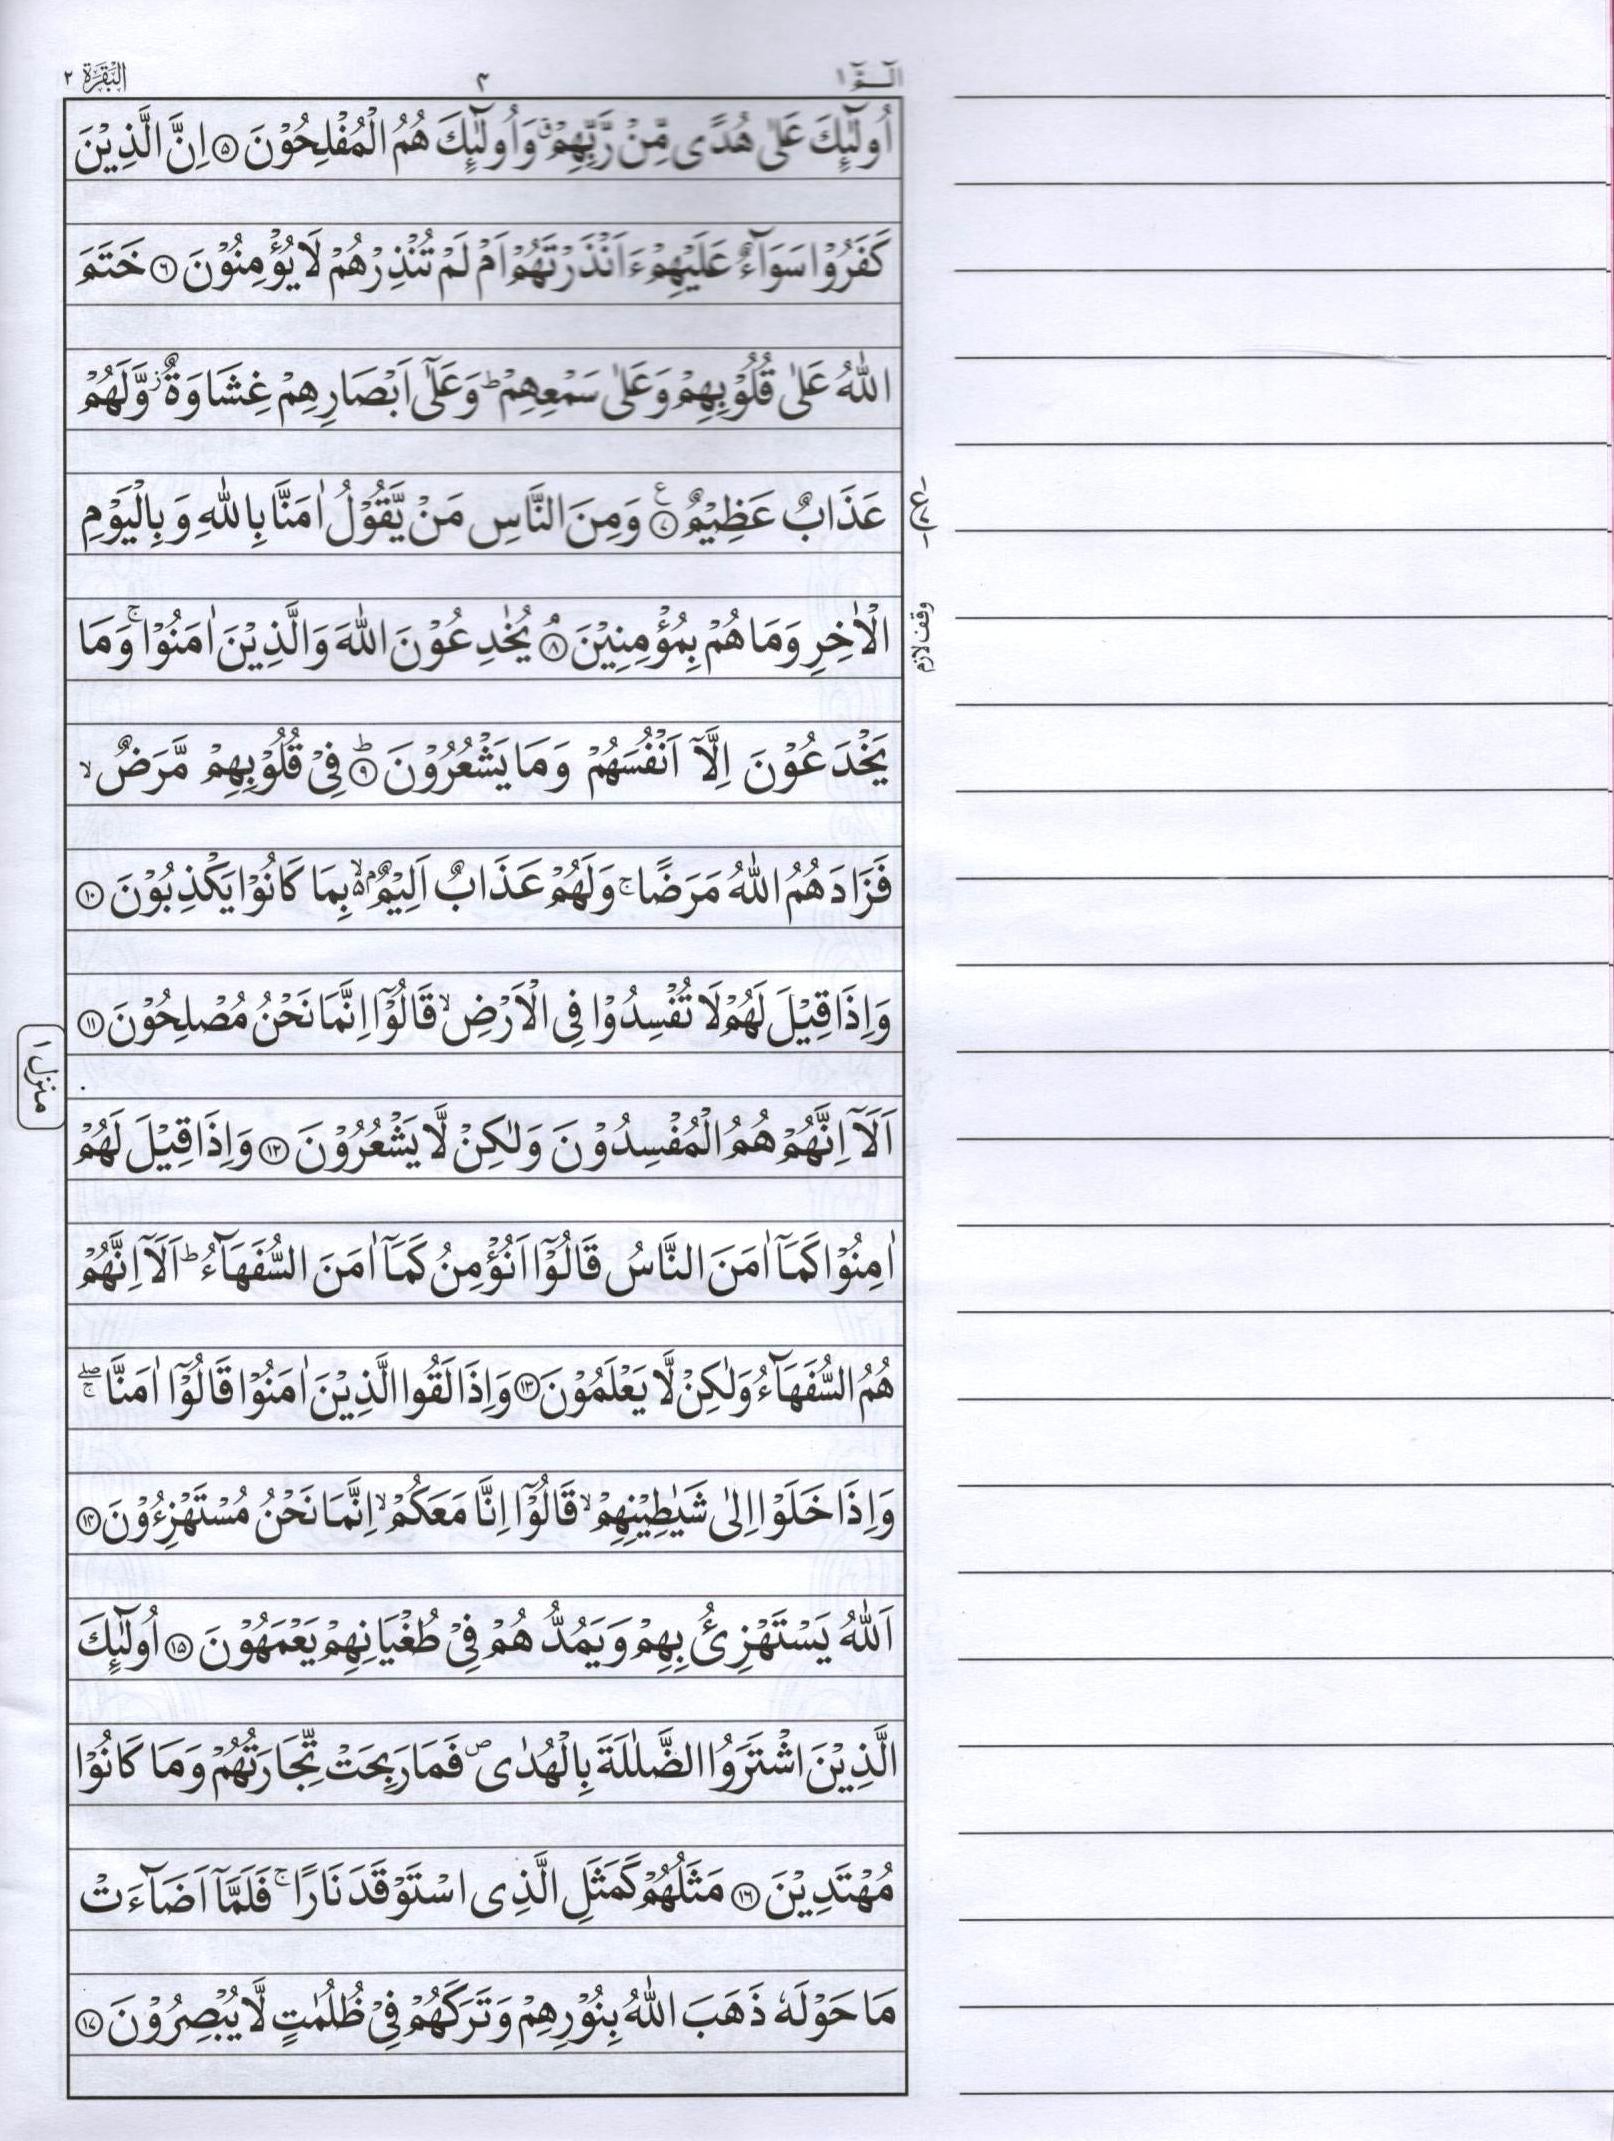 الٓمّٓ ١
۴
البقرة ٢
اُولٰٓئِكَ عَلٰی هُدًی مِّنْ رَّبِّهِمْ ۗ وَاُولٰٓئِكَ هُمُ الْمُفْلِحُوْنَ ۝۵ اِنَّ الَّذِیْنَ
كَفَرُوْا سَوَآءٌ عَلَیْهِمْ ءَاَنْذَرْتَهُمْ اَمْ لَمْ تُنْذِرْهُمْ لَا یُؤْمِنُوْنَ ۝۶ خَتَمَ
اللّٰهُ عَلٰی قُلُوْبِهِمْ وَعَلٰی سَمْعِهِمْ ؕ وَعَلٰۤی اَبْصَارِهِمْ غِشَاوَةٌ ؗ وَّلَهُمْ
عَذَابٌ عَظِیْمٌ ۝۷ع وَمِنَ النَّاسِ مَنْ یَّقُوْلُ اٰمَنَّا بِاللّٰهِ وَ بِالْیَوْمِ
ع
الْاٰخِرِ وَمَا هُمْ بِمُؤْمِنِیْنَ ۝۸ۘ یُخٰدِعُوْنَ اللّٰهَ وَالَّذِیْنَ اٰمَنُوْا ۚ وَمَا
وقف لازم
یَخْدَعُوْنَ اِلَّاۤ اَنْفُسَهُمْ وَمَا یَشْعُرُوْنَ ۝۹ؕ فِیْ قُلُوْبِهِمْ مَّرَضٌ ۙ
فَزَادَهُمُ اللّٰهُ مَرَضًا ۚ وَلَهُمْ عَذَابٌ اَلِیْمٌۢ ۙ۬ بِمَا كَانُوْا یَكْذِبُوْنَ ۝۱۰
وَاِذَا قِیْلَ لَهُمْ لَا تُفْسِدُوْا فِی الْاَرْضِ ۙ قَالُوْۤا اِنَّمَا نَحْنُ مُصْلِحُوْنَ ۝۱۱
منزل ١
اَلَاۤ اِنَّهُمْ هُمُ الْمُفْسِدُوْنَ وَلٰكِنْ لَّا یَشْعُرُوْنَ ۝۱۲ وَاِذَا قِیْلَ لَهُمْ
اٰمِنُوْا كَمَاۤ اٰمَنَ النَّاسُ قَالُوْۤا اَنُؤْمِنُ كَمَاۤ اٰمَنَ السُّفَهَآءُ ؕ اَلَاۤ اِنَّهُمْ
هُمُ السُّفَهَآءُ وَلٰكِنْ لَّا یَعْلَمُوْنَ ۝۱۳ وَاِذَا لَقُوا الَّذِیْنَ اٰمَنُوْا قَالُوْۤا اٰمَنَّا ۖۚ
وَاِذَا خَلَوْا اِلٰی شَیٰطِیْنِهِمْ ۙ قَالُوْۤا اِنَّا مَعَكُمْ ۙ اِنَّمَا نَحْنُ مُسْتَهْزِءُوْنَ ۝۱۴
اَللّٰهُ یَسْتَهْزِئُ بِهِمْ وَیَمُدُّهُمْ فِیْ طُغْیَانِهِمْ یَعْمَهُوْنَ ۝۱۵ اُولٰٓئِكَ
الَّذِیْنَ اشْتَرَوُا الضَّلٰلَةَ بِالْهُدٰی ۪ فَمَا رَبِحَتْ تِّجَارَتُهُمْ وَمَا كَانُوْا
مُهْتَدِیْنَ ۝۱۶ مَثَلُهُمْ كَمَثَلِ الَّذِی اسْتَوْقَدَ نَارًا ۚ فَلَمَّاۤ اَضَآءَتْ
مَا حَوْلَهٗ ذَهَبَ اللّٰهُ بِنُوْرِهِمْ وَتَرَكَهُمْ فِیْ ظُلُمٰتٍ لَّا یُبْصِرُوْنَ ۝۱۷